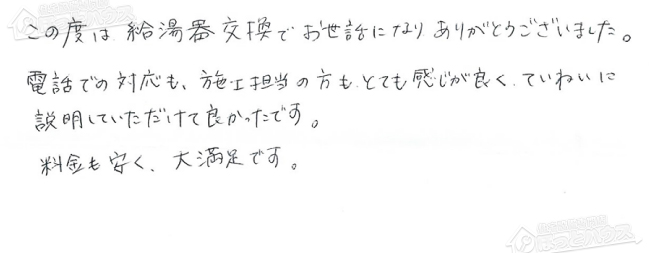 この度は給湯器交換でお世話になりありがとうございました。
電話での対応も、施工担当の方も、とても感じが良く、ていねいに
説明していただけて良かったです。
料金も安く、大満足です。